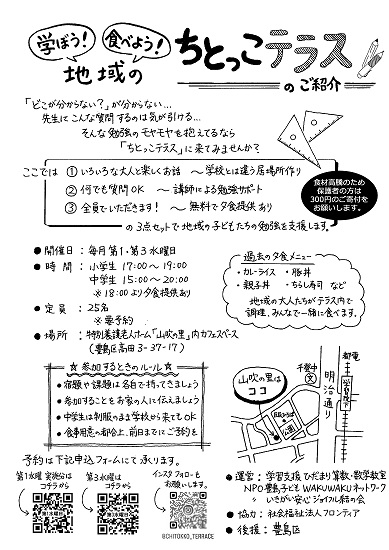 学ぼう！
食べよう！
地域の
ちとっこテラス
のご紹介
「どこが分からない？」が分からない…
先生にこんな質問するのは気が引ける…
そんな勉強のモヤモヤを抱えてるなら
「ちとっこテラス」に来てみませんか？
ここでは
① いろいろな大人と楽しくお話 〜学校とは違う居場所作り
② 何でも質問OK 〜講師による勉強サポート
③ 全員でいただきます！ 〜無料で夕食提供あり
の3点セットで地域の子どもたちの勉強を支援します。
食材高騰のため
保護者の方は
300円のご寄付を
お願いします。
● 開催日：毎月第1・第3水曜日
● 時間：小学生 17:00〜19:00
中学生 15:00〜20:00
※18:00より夕食提供あり
● 定員：25名
※要予約
● 場所：特別養護老人ホーム「山吹の里」内カフェスペース
（豊島区高田3-37-17）
過去の夕食メニュー
・カレーライス ・豚丼
・親子丼 ・ちらし寿司 など
地域の大人たちがテラス内で
調理、みんなで一緒に食べます。
☆ 参加するときのルール ☆
● 宿題や課題は各自で持ってきましょう
● 参加することをお家の人に伝えましょう
● 中学生は制服のまま学校から来てもOK
● 食事用意の都合上、前日までにご予約を
山吹の里は
ココ
千登中
文
明治通り
都電
学習院下
高田
公園
予約は下記申込フォームにて承ります。
第1水曜 実施分は
コチラから
第3水曜は
コチラから
インスタフォローも
お願いします。
第1水曜日
第3水曜日
@CHITOKKO_TERRACE
● 運営：学習支援 ひだまり算数・数学教室
NPO豊島子どもWAKUWAKUネットワーク
いきがい安心 ジョイフル結の会
● 協力：社会福祉法人フロンティア
● 後援：豊島区